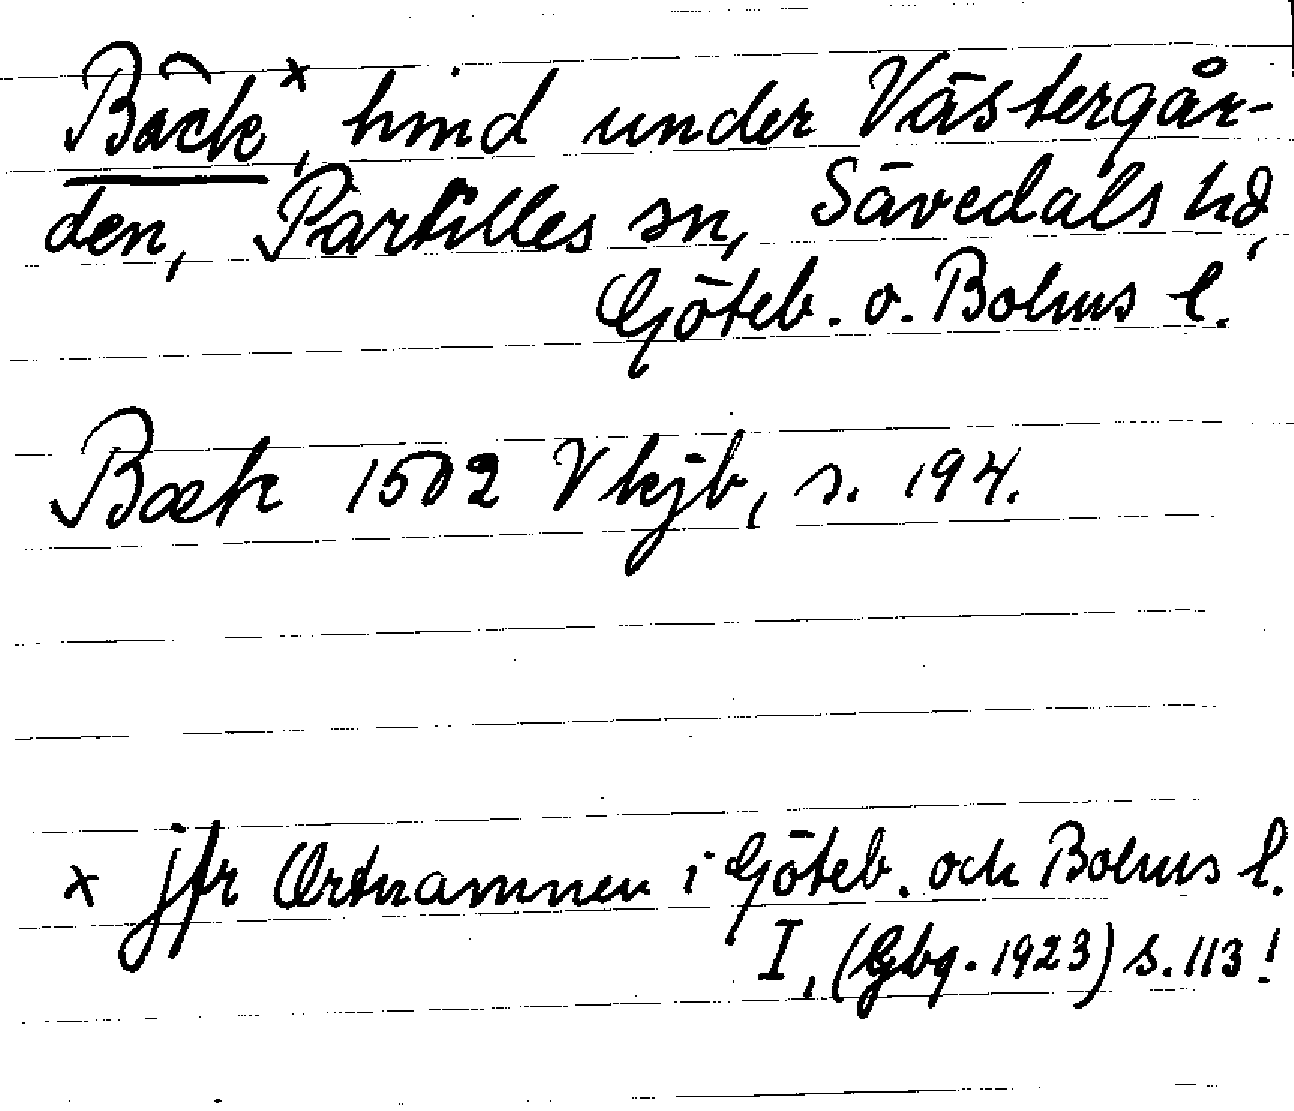 Bäck ˣ, hmd under Västergår-
den, Partilles sn, Sävedals hd,
Göteb. o. Bohus l.
Bæk 1502 Vkjb, s. 194.
x jfr Ortnamnen i Göteb. och Bohus l.
I, (Gbg. 1923) s. 113!